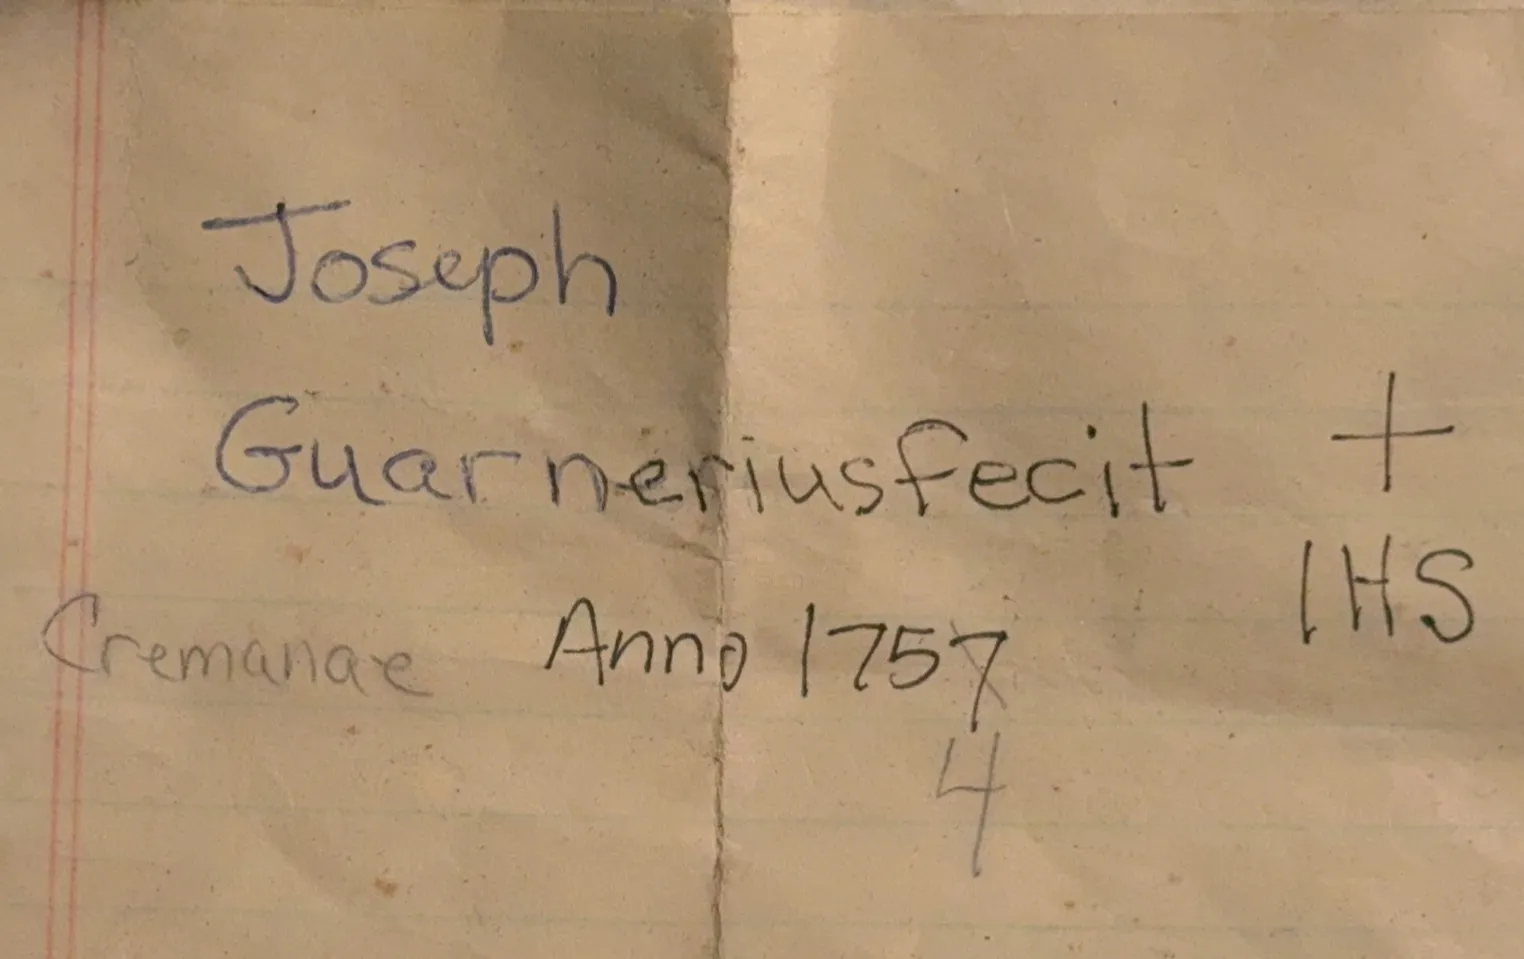 Joseph
Guarneriusfecit +
IHS
Cremanae Anno 1757
4